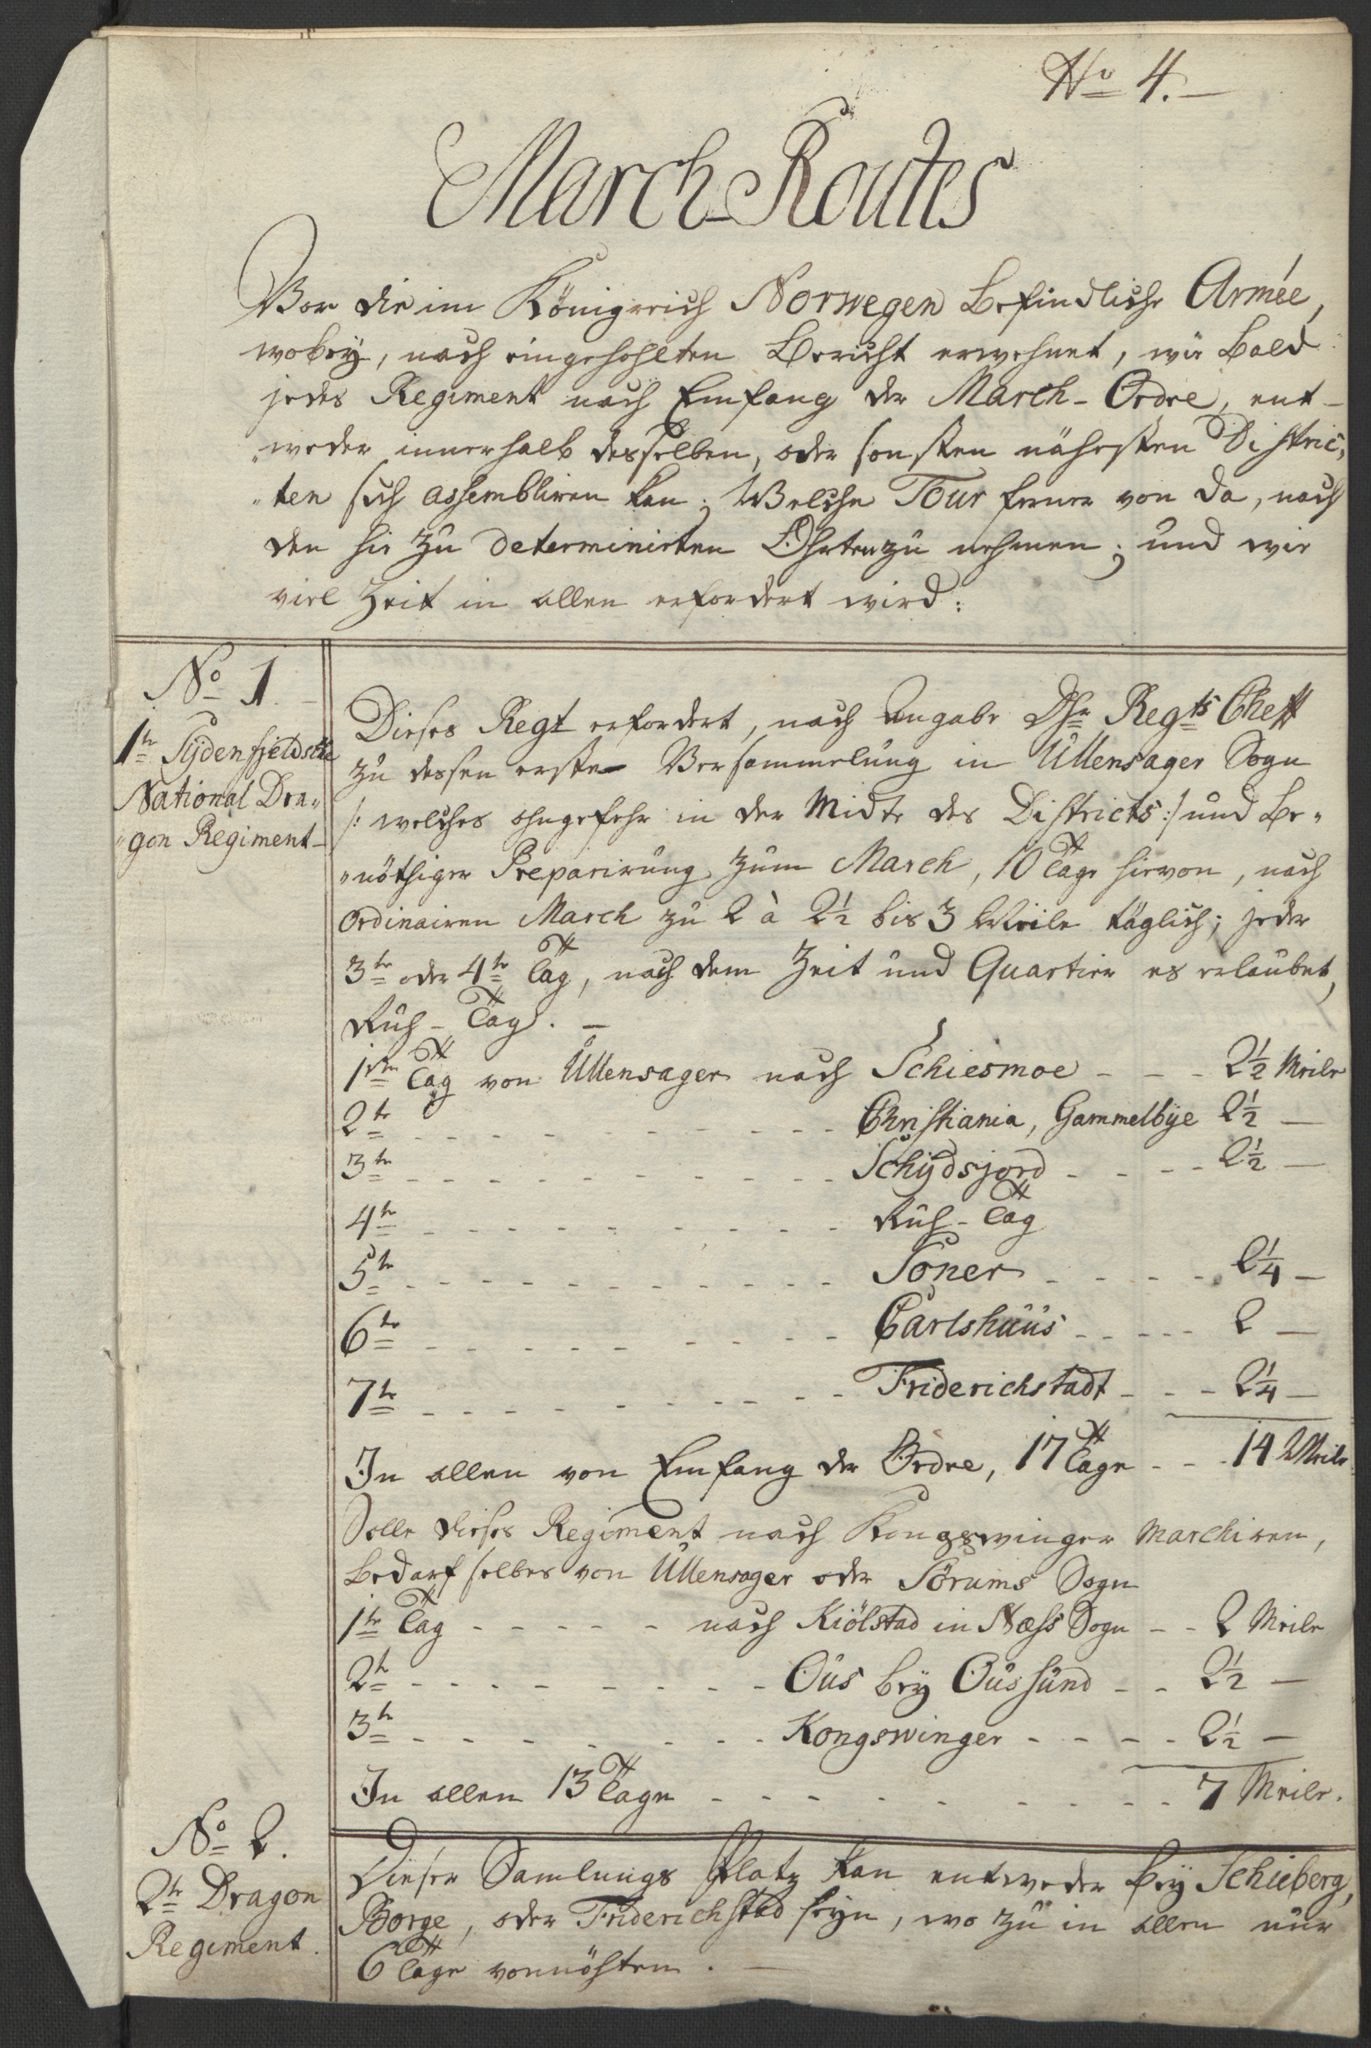 No 4.
March-Routes
Vor die im Königreich Norwegen befindliche Armée,
wobey, nach eingehohlten Bericht erwehnet, wie bald
jedes Regiment nach Emfang der March-Ordre, ent-
weder innerhalb desselben, oder sonsten nähesten District-
ten sich assembliren kan; Welche Tour ferner von da, nach
den hie zu determinirten Öhrten zu nehmen; und wie
viel Zeit in allen erfordert wird:
No 1
1te Sydenfjeldsche
National Dra-
gon Regiment
Dieses Regt erfordert, nach Angabe Dhr Regts Cheff
zu dessen erste Versammelung in Ullensager Sogn
/: welches ohngefehr in der Midte des Districts :/ und be-
nöthiger Preparirung zum March, 10 Tage hievon, nach
Ordinairen March zu 2 à 2½ bis 3 Meile täglich; jeder
3te oder 4te Tag, nach dem Zeit und Quartier es erlaubet,
Ruh-Tag.
1ste Tag von Ullensager nach Schiesmoe - - - 2½ Meile
2te - - - Christiania, Gammelbye 2½ —
3te - - - Schydsjord - - - 2½ —
4te - - - Ruh-Tag
5te - - - Soner - - - 2¼ —
6te - - - Carlshuus - - - 2 —
7te - - - Friderichstadt - - - 2¼ —
In allen von Emfang der Ordre, 17 Tage - - - 14 Meile
Solle dieses Regiment nach Kongswinger marchiren,
bedarf selbes von Ullensager oder Sörums Sogn
1te Tag - - - nach Kiölstad in Næss Sogn - - 2 Meile
2te - - - Ous bey Oussund - - 2½ —
3te - - - Kongswinger - - - 2½ —
In allen 13 Tage - - - 7 Meile.
No 2.
2te Dragon
Regiment.
Dieser Samlungs Platz kan entweder bey Schieberg,
Borge, oder Friderichstad seyn, wo zu in allen nur
6 Tage vonnöhten.